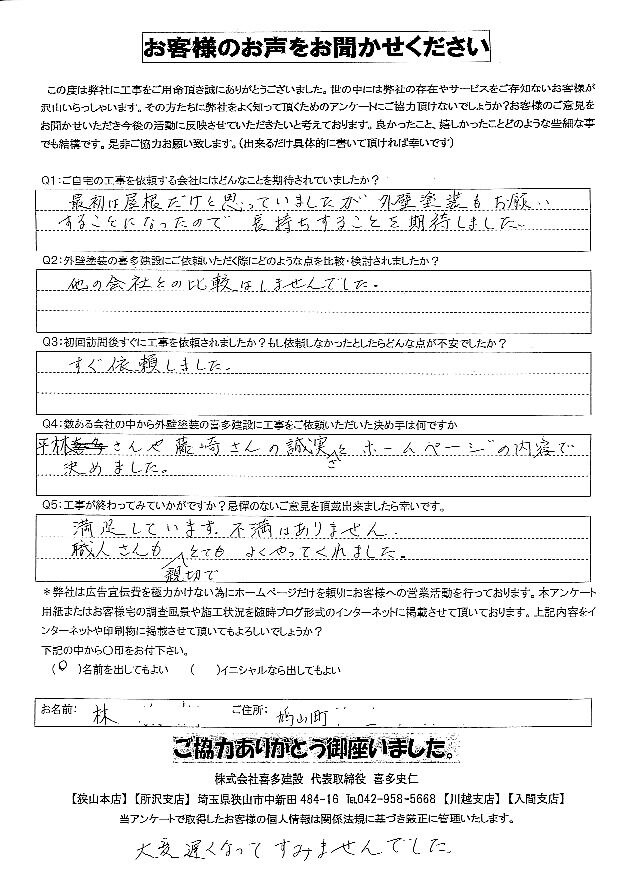 お客様のお声をお聞かせください
この度は弊社に工事をご用命頂き誠にありがとうございました。世の中には弊社の存在やサービスをご存知ないお客様が
沢山いらっしゃいます。その方たちに弊社をよく知って頂くためのアンケートにご協力頂けないでしょうか?お客様のご意見を
お聞かせいただき今後の活動に反映させていただきたいと考えております。良かったこと、嬉しかったことどのような些細な事
でも結構です。是非ご協力お願い致します。(出来るだけ具体的に書いて頂ければ幸いです)
Q1:ご自宅の工事を依頼する会社にはどんなことを期待されていましたか?
最初は屋根だけと思っていましたが外壁塗装もお願い
することになったので長持ちすることを期待しました。
Q2:外壁塗装の喜多建設にご依頼いただく際にどのような点を比較・検討されましたか?
他の会社との比較はしませんでした。
Q3:初回訪問後すぐに工事を依頼されましたか?もし依頼しなかったとしたらどんな点が不安でしたか?
すぐ依頼しました。
Q4:数ある会社の中から外壁塗装の喜多建設に工事をご依頼いただいた決め手は何ですか
平林さんや藤崎さんの誠実さとホームページの内容で
決めました。
Q5:工事が終わってみていかがですか?忌憚のないご意見を頂戴出来ましたら幸いです。
満足しています。不満はありません。
職人さんも親切でとてもよくやってくれました。
*弊社は広告宣伝費を極力かけない為にホームページだけを頼りにお客様への営業活動を行っております。本アンケート
用紙またはお客様宅の調査風景や施工状況を随時ブログ形式のインターネットに掲載させて頂いております。上記内容をイ
ンターネットや印刷物に掲載させて頂いてもよろしいでしょうか?
下記の中から〇印をお付下さい。
(〇)名前を出してもよい ( )イニシャルなら出してもよい
お名前: 林 ご住所: 鳩山町
ご協力ありがとう御座いました。
株式会社喜多建設 代表取締役 喜多史仁
【狭山本店】【所沢支店】 埼玉県狭山市中新田484-16 ℡042-958-5668 【川越支店】【入間支店】
当アンケートで取得したお客様の個人情報は関係法規に基づき厳正に管理いたします。
大変遅くなってすみませんでした。